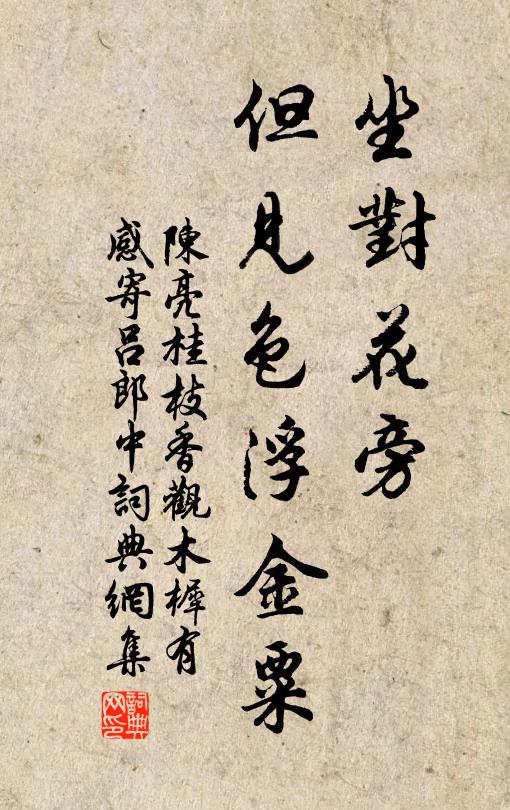 坐對花旁
但見色浮金粟
陳亮桂枝香觀木樨有
感寄呂郎中詞典網集
詞典网印